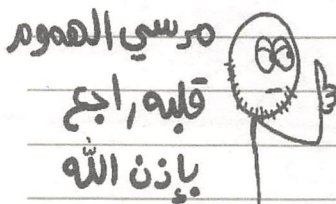 مرسي الهموم
قلبه راجع
بإذن الله